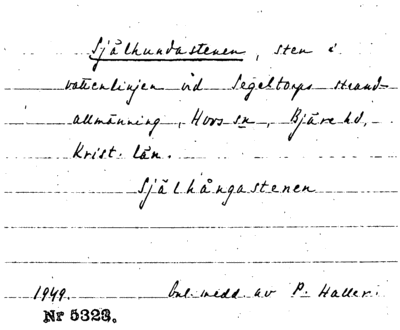 Själhundastenen, sten i
vattenlinjen vid Segeltorps strand-
allmänning, Hovs sn, Bjäre hd,
Krist. län.
Själhångastenen
1949. Enl. medd av P. Haller.
Nr 5323.